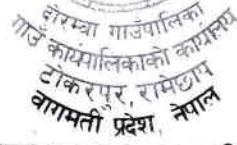 दोरम्बा गाउँपालिका
गाउँ कार्यपालिकाको कार्यालय
टोकरपुर, रामेछाप
वागमती प्रदेश, नेपाल